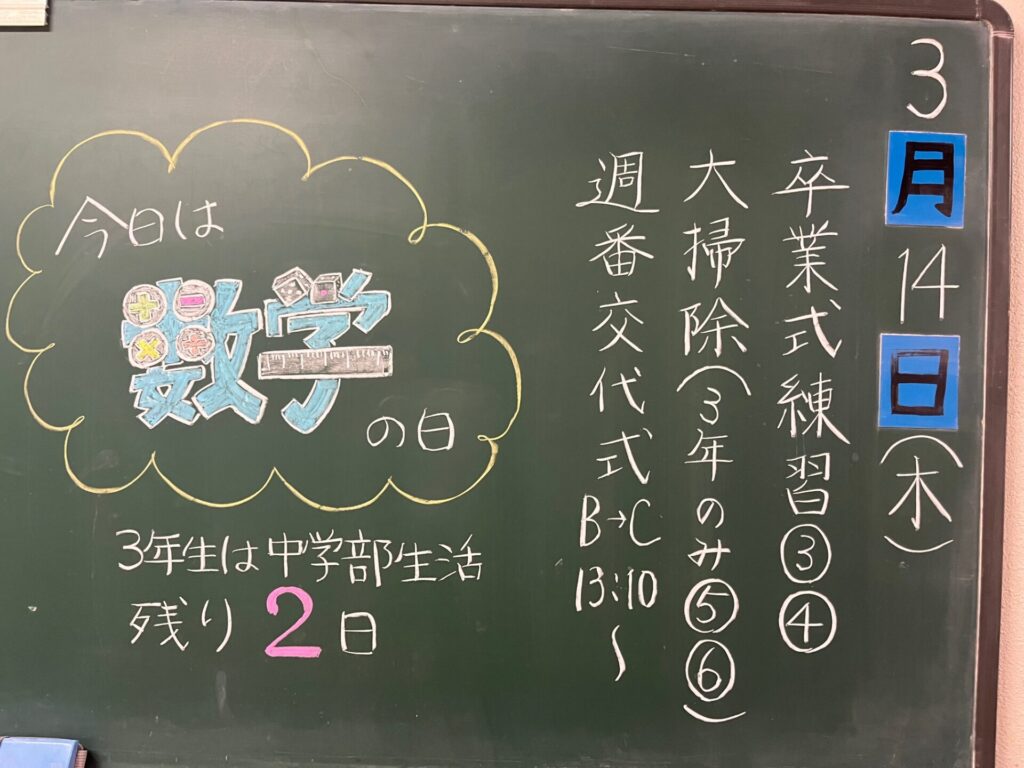 3月14日(木)
卒業式練習③④
大掃除(3年のみ⑤⑥)
週番交代式B→C13:10〜
今日は
数学
の日
3年生は中学部生活
残り2日